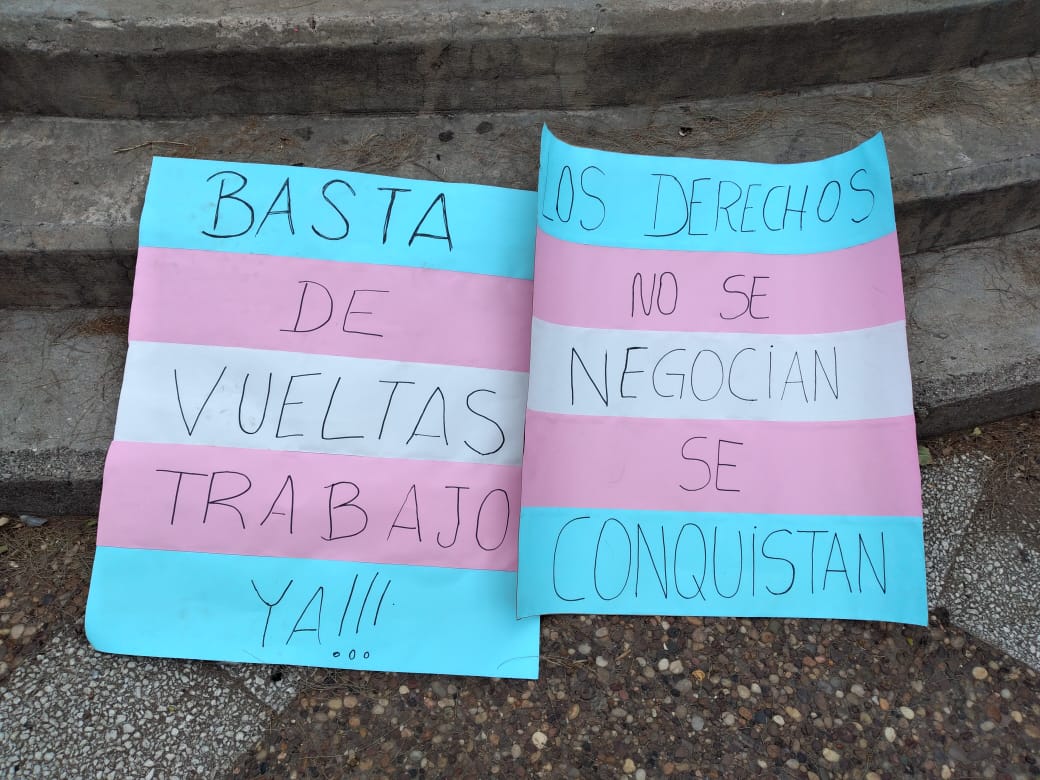 BASTA
DE
VUELTAS
TRABAJO
YA!!!
LOS DERECHOS
NO SE
NEGOCIAN
SE
CONQUISTAN